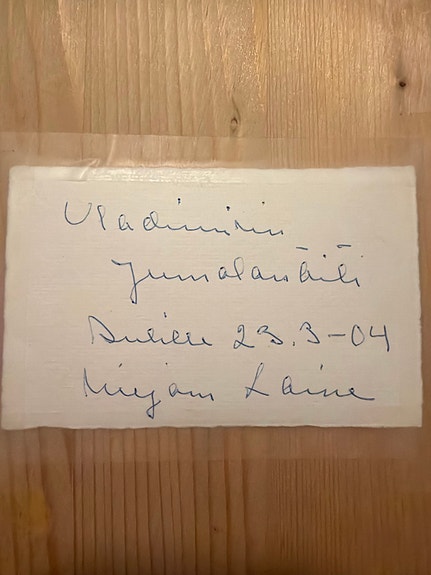 Vladimirin
Jumalanäiti
23.3-04
Mirjam Laine